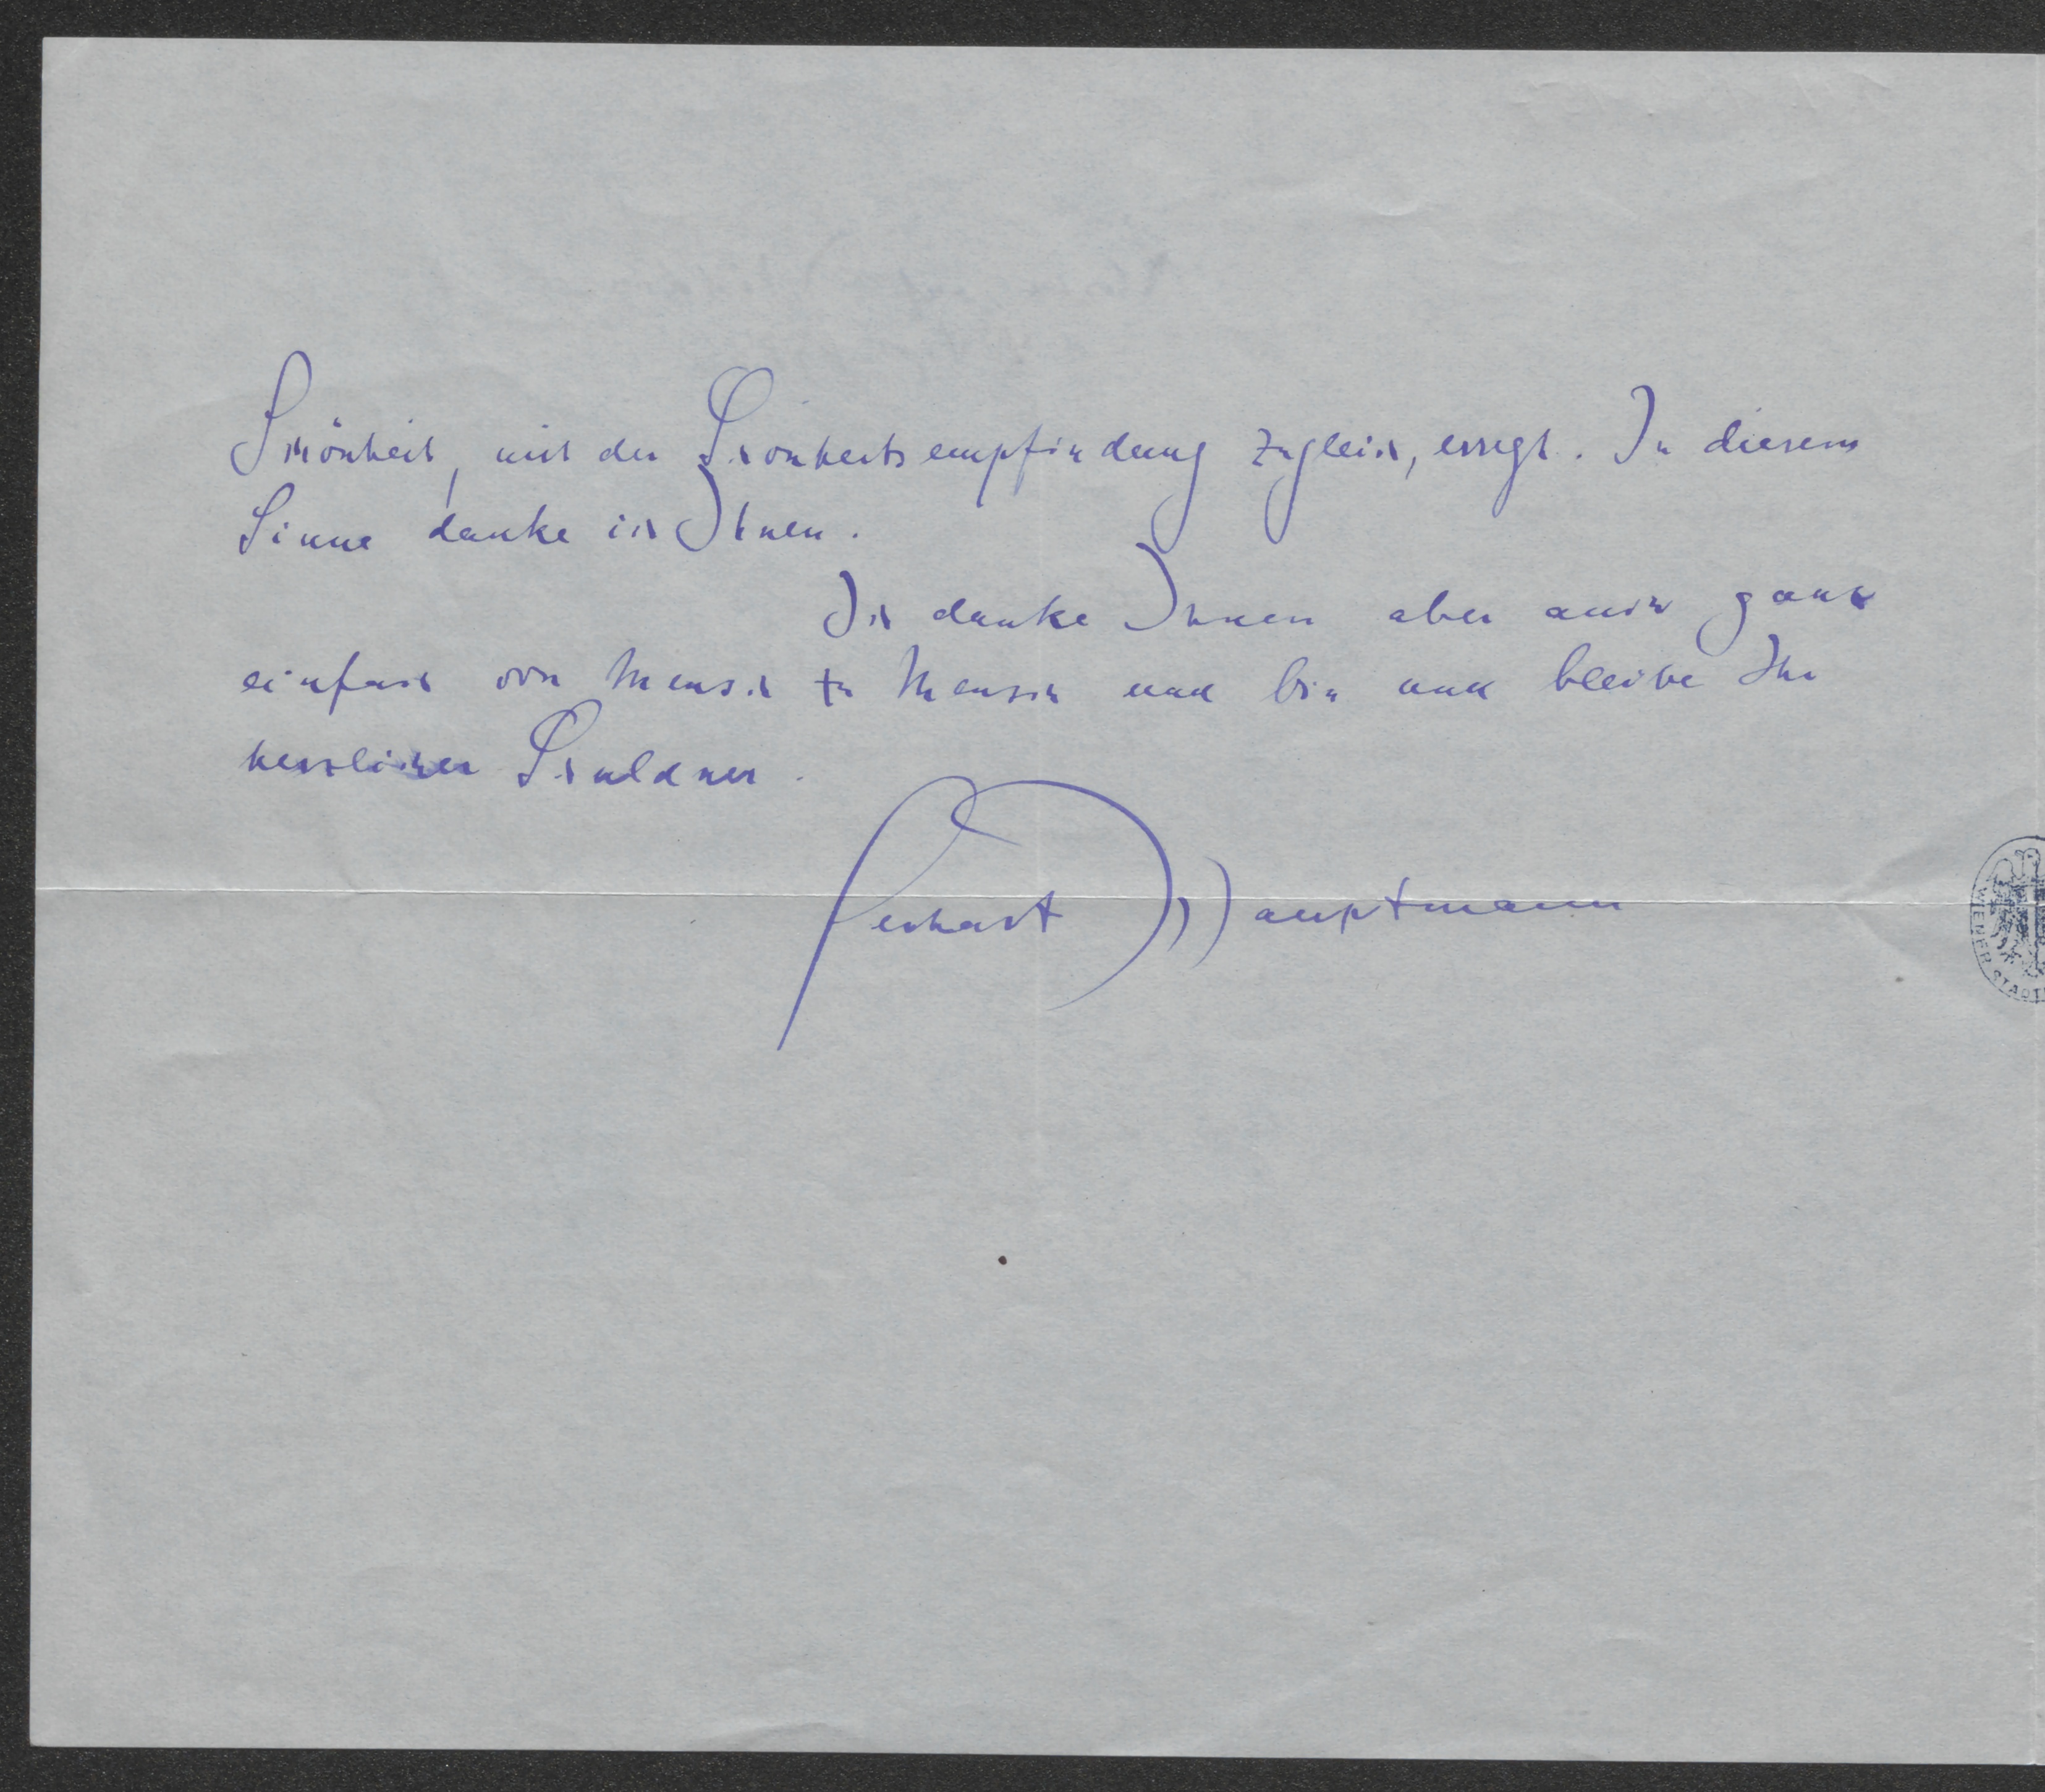 Schönheit, mit der Schönheitsempfindung zugleich, erregt. In diesem
Sinne danke ich Ihnen.
Ich danke Ihnen aber auch ganz
einfach von Mensch zu Mensch und bin und bleibe Ihr
herzlicher Schuldner.
Gerhart Hauptmann
WIENER STADT